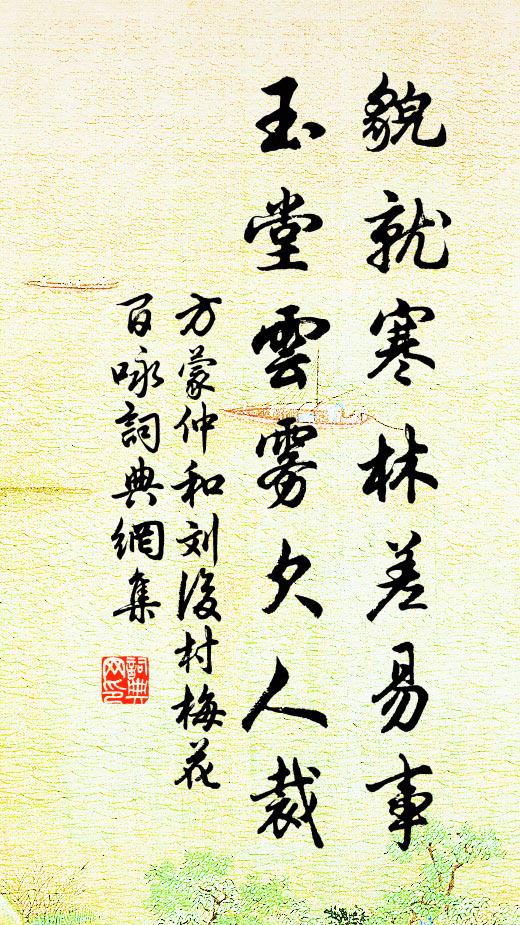 貌就寒林差易事
玉堂雲雾欠人裁
方蒙仲和刘後村梅花
百咏詞典網集
詞典
网印